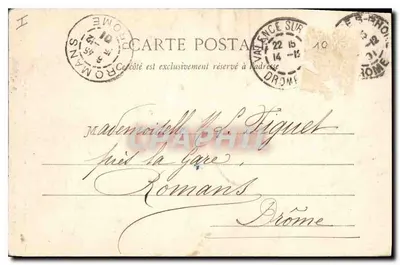 I
CARTE POSTALE
Ce côté est exclusivement réservé à l'adresse
ROMANS
DROME
VALENCE SUR
22 15
14 -12
DROME
10
Mademoiselle M. L. Figuet
près la Gare
Romans
Drôme